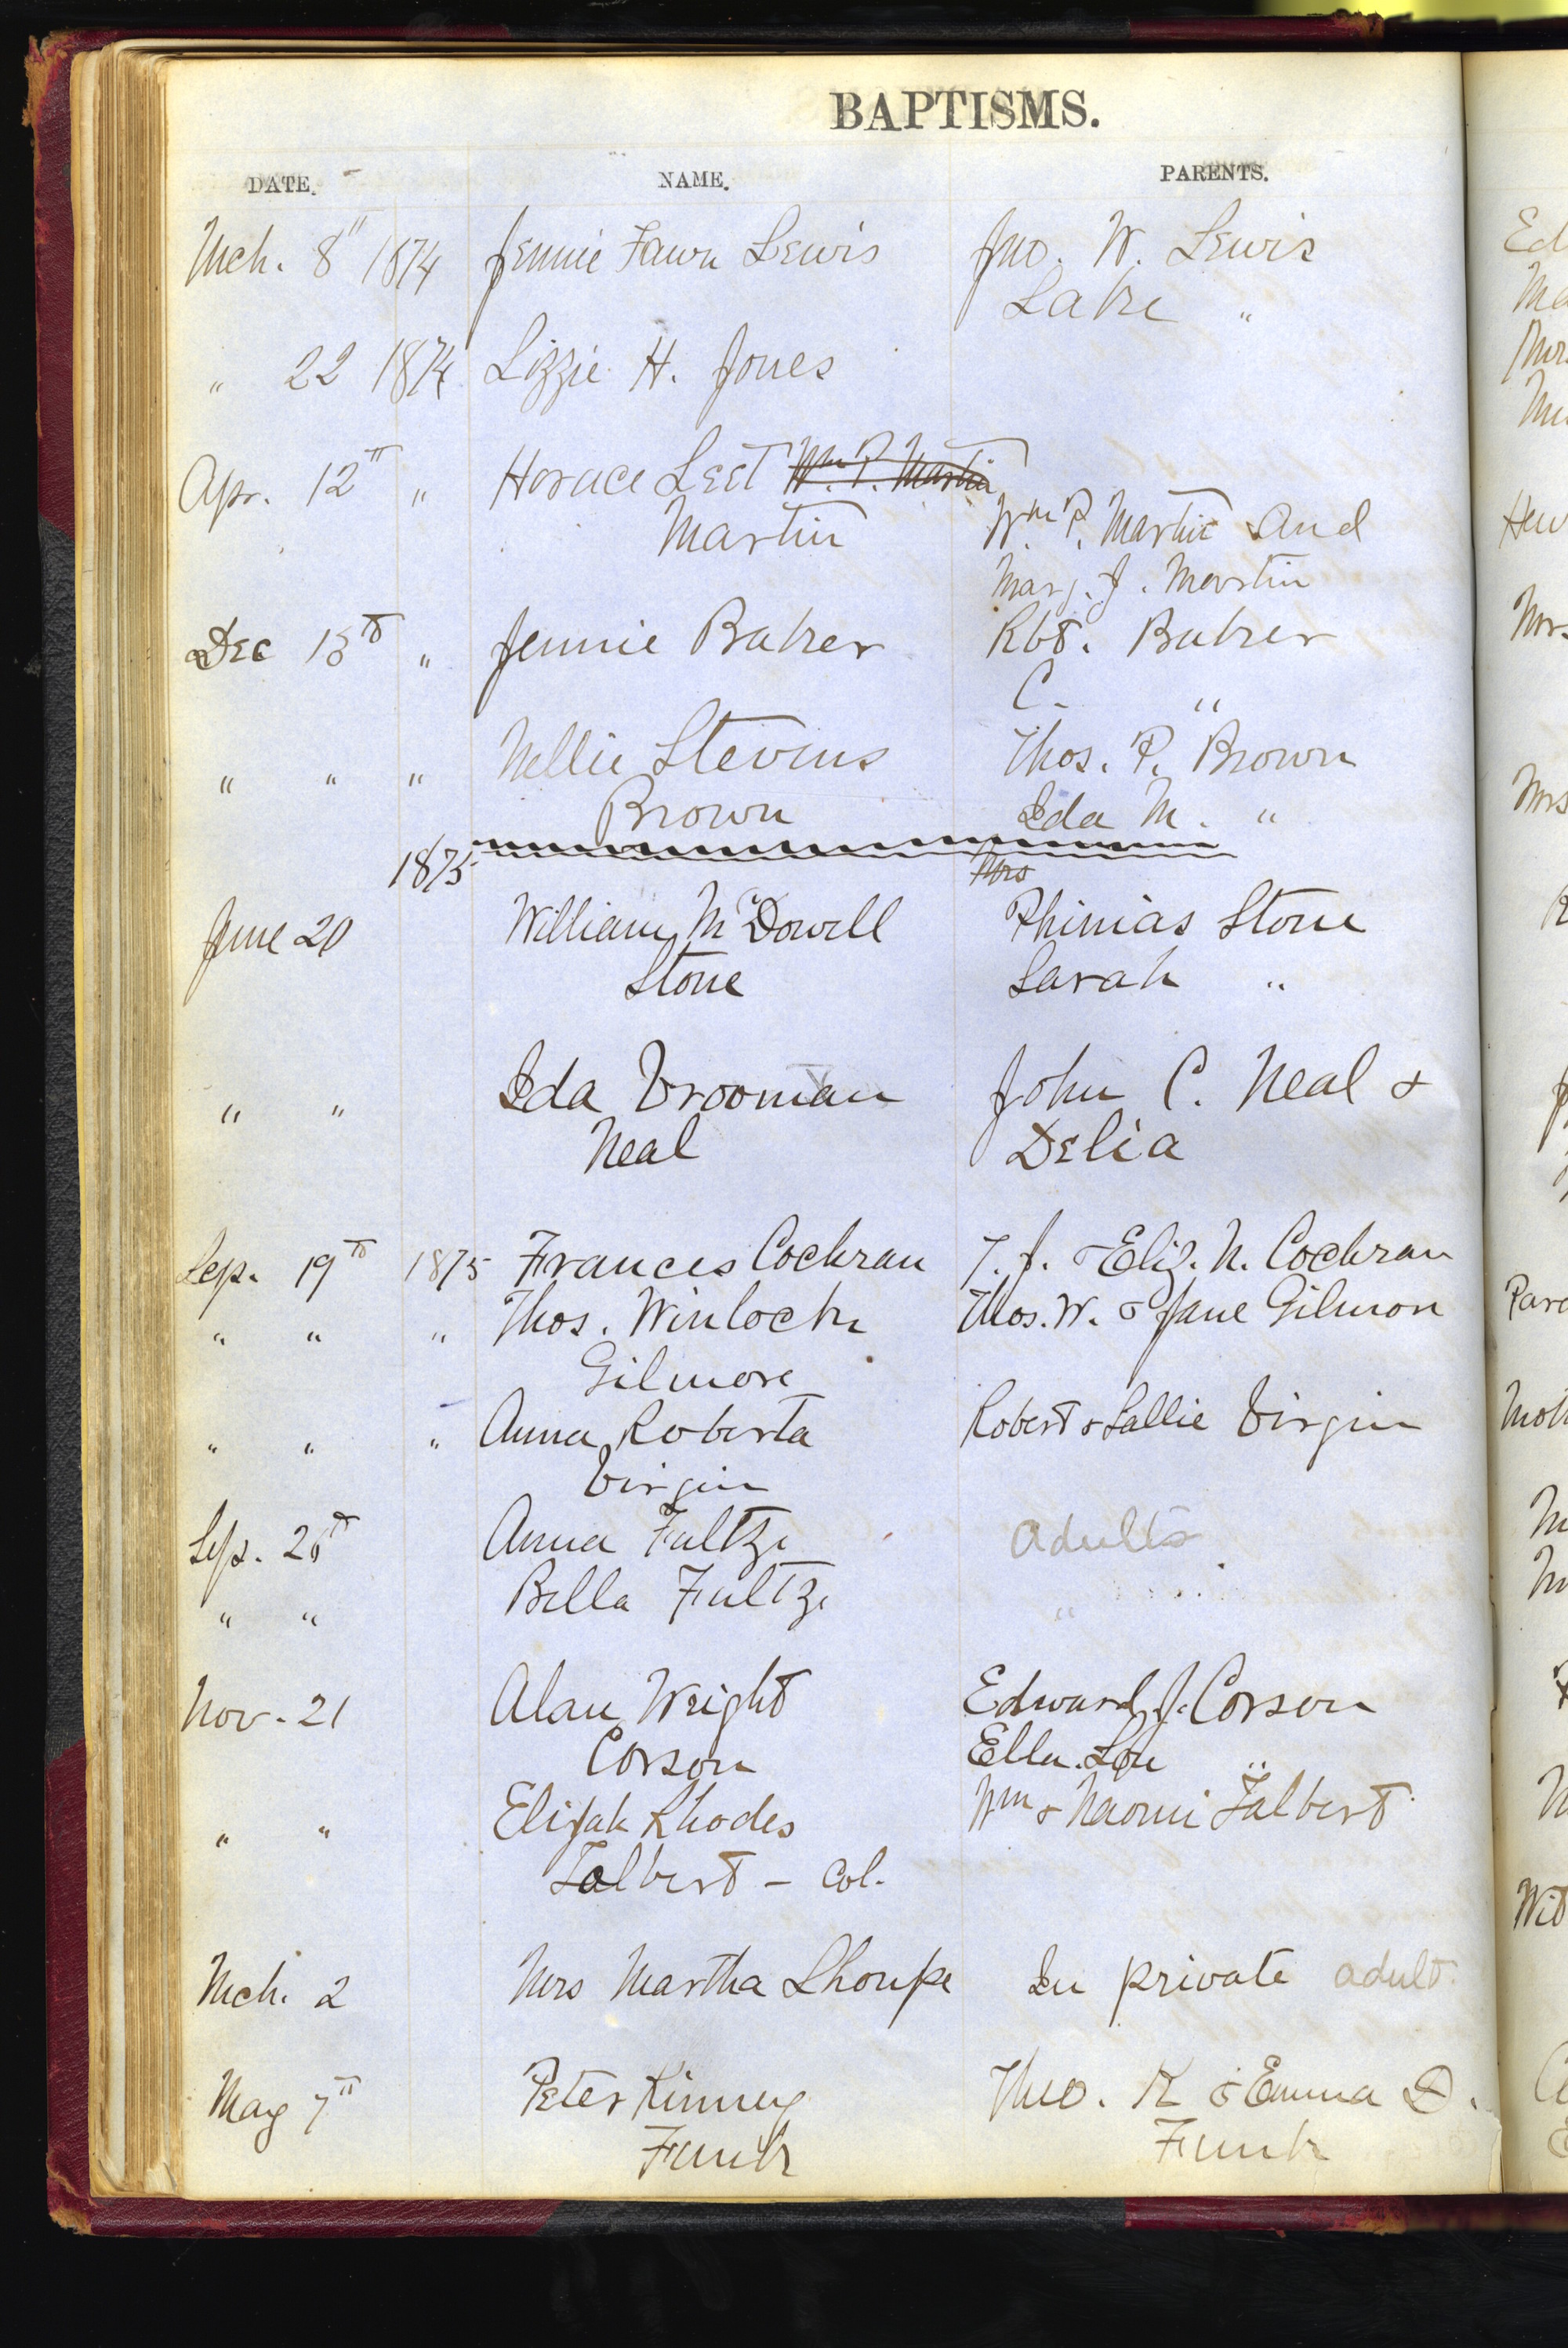 BAPTISMS.
DATE. NAME. PARENTS.
Mch. 8" 1874 Jennie Fawn Lewis Jno. W. Lewis
Lake "
" 22 1874 Lizzie H. Jones
Apr. 12th " Horace Leet Wm. P. Martin
Martin Wm. P. Martin and
Mary. J. Martin
Dec 13th " Jennie Baker Rbt. Baker
C. "
" " " Nellie Stevens Thos. P. Brown
Brown Ida M. "
1875 Mrs
June 20 William McDowell Phinias Stone
Stone Sarah "
" " Ida Vrooman John C. Neal &
Neal Delia
Sep. 19th 1875 Frances Cochran T. J. & Eliz. N. Cochran
" " " Thos. Winlock Thos. W. & Jane Gilmore
Gilmore
" " " Anna Roberta Robert & Sallie Virgin
Virgin
Sep. 26th Anna Fultze Adults
" " Bella Fultze "
Nov. 21 Alan Wright Edward J. Corson
Corson Ella Lou "
" " Elijah Rhodes Wm & Naomi Talbert
Talbert - Col.
Mch. 2 Mrs Martha Shoupe In private adult.
May 7th Peter Kinney Theo. K & Emma D.
Funk Funk